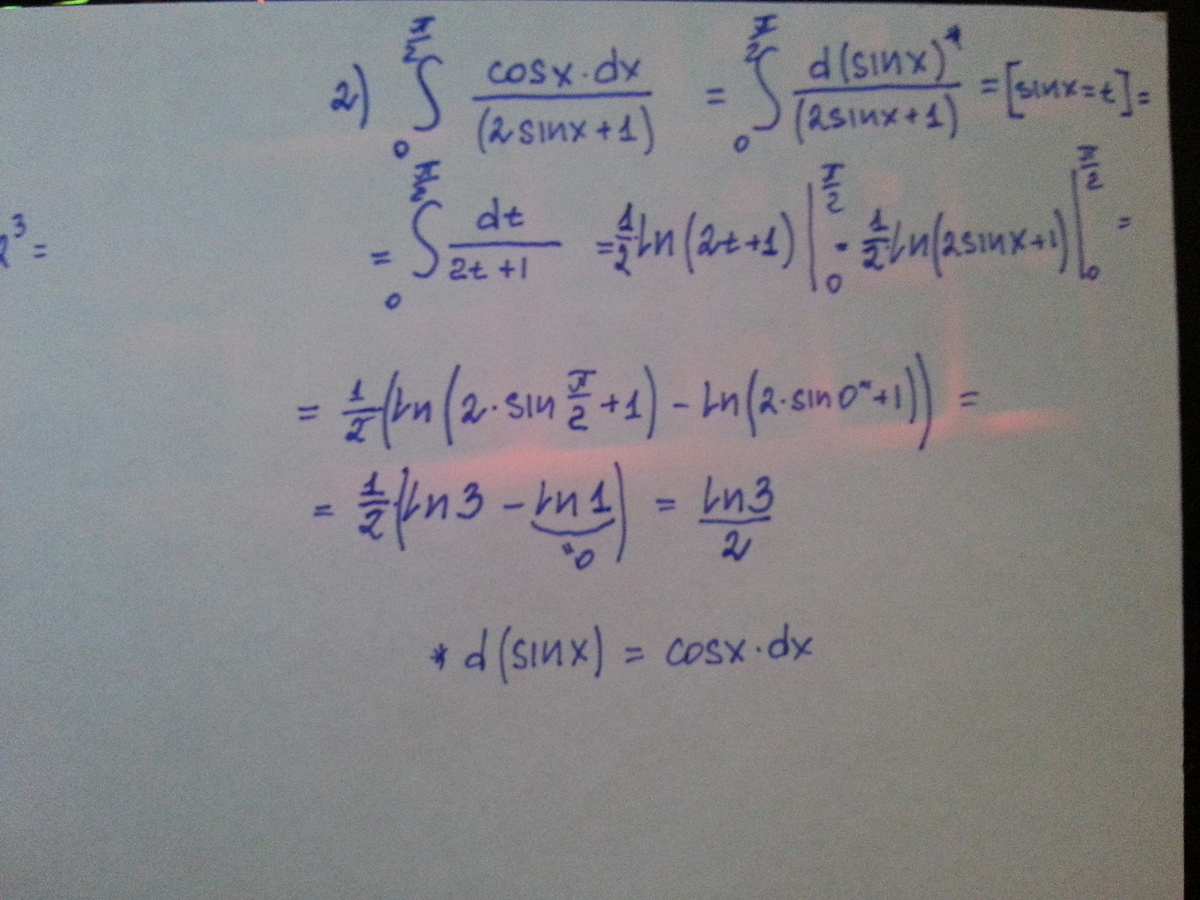 2) ∫₀^{π/2} cosx·dx / (2sinx+1) = ∫₀^{π/2} d(sinx)* / (2sinx+1) = [sinx=t] =
= ∫₀^{π/2} dt / (2t+1) = 1/2 ln(2t+1) |₀^{π/2} = 1/2 ln(2sinx+1) |₀^{π/2} =
2³ =
= 1/2 (ln(2·sin π/2 +1) - ln(2·sin0°+1)) =
= 1/2 (ln3 - ln1) = ln3 / 2
"0
* d(sinx) = cosx·dx